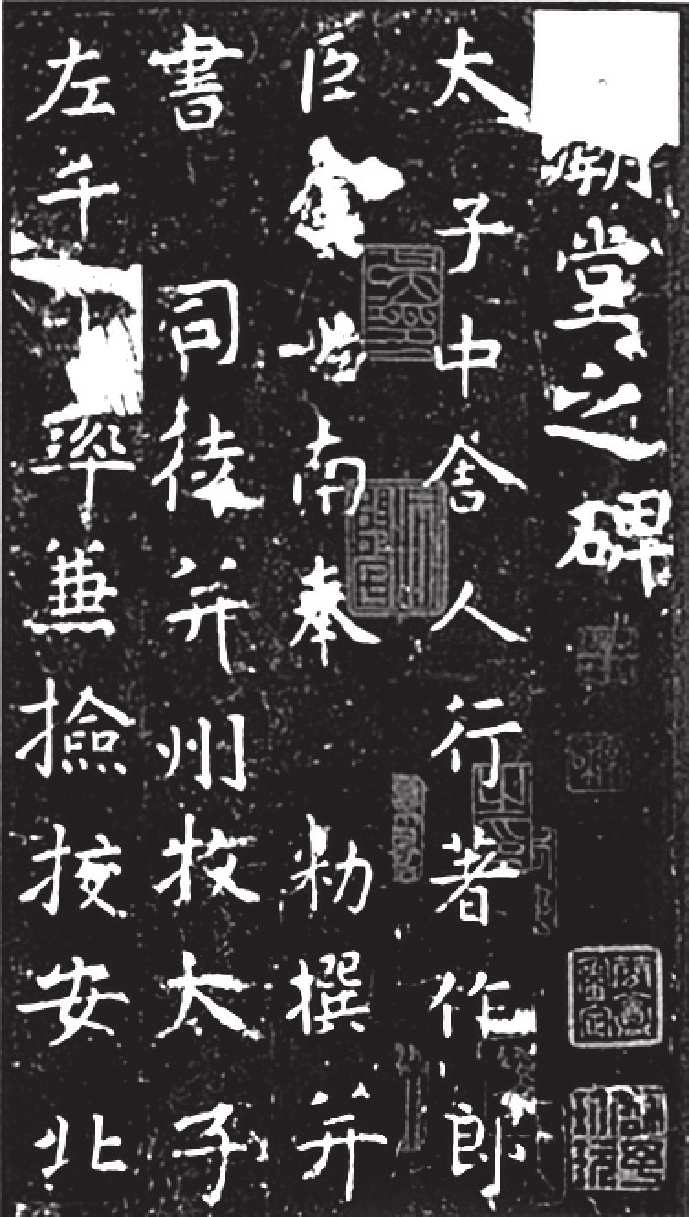 廟堂之碑
太子中舍人行著作郎
臣虞世南奉勑撰并
書 司徒并州牧太子
左千牛率兼撿挍安北